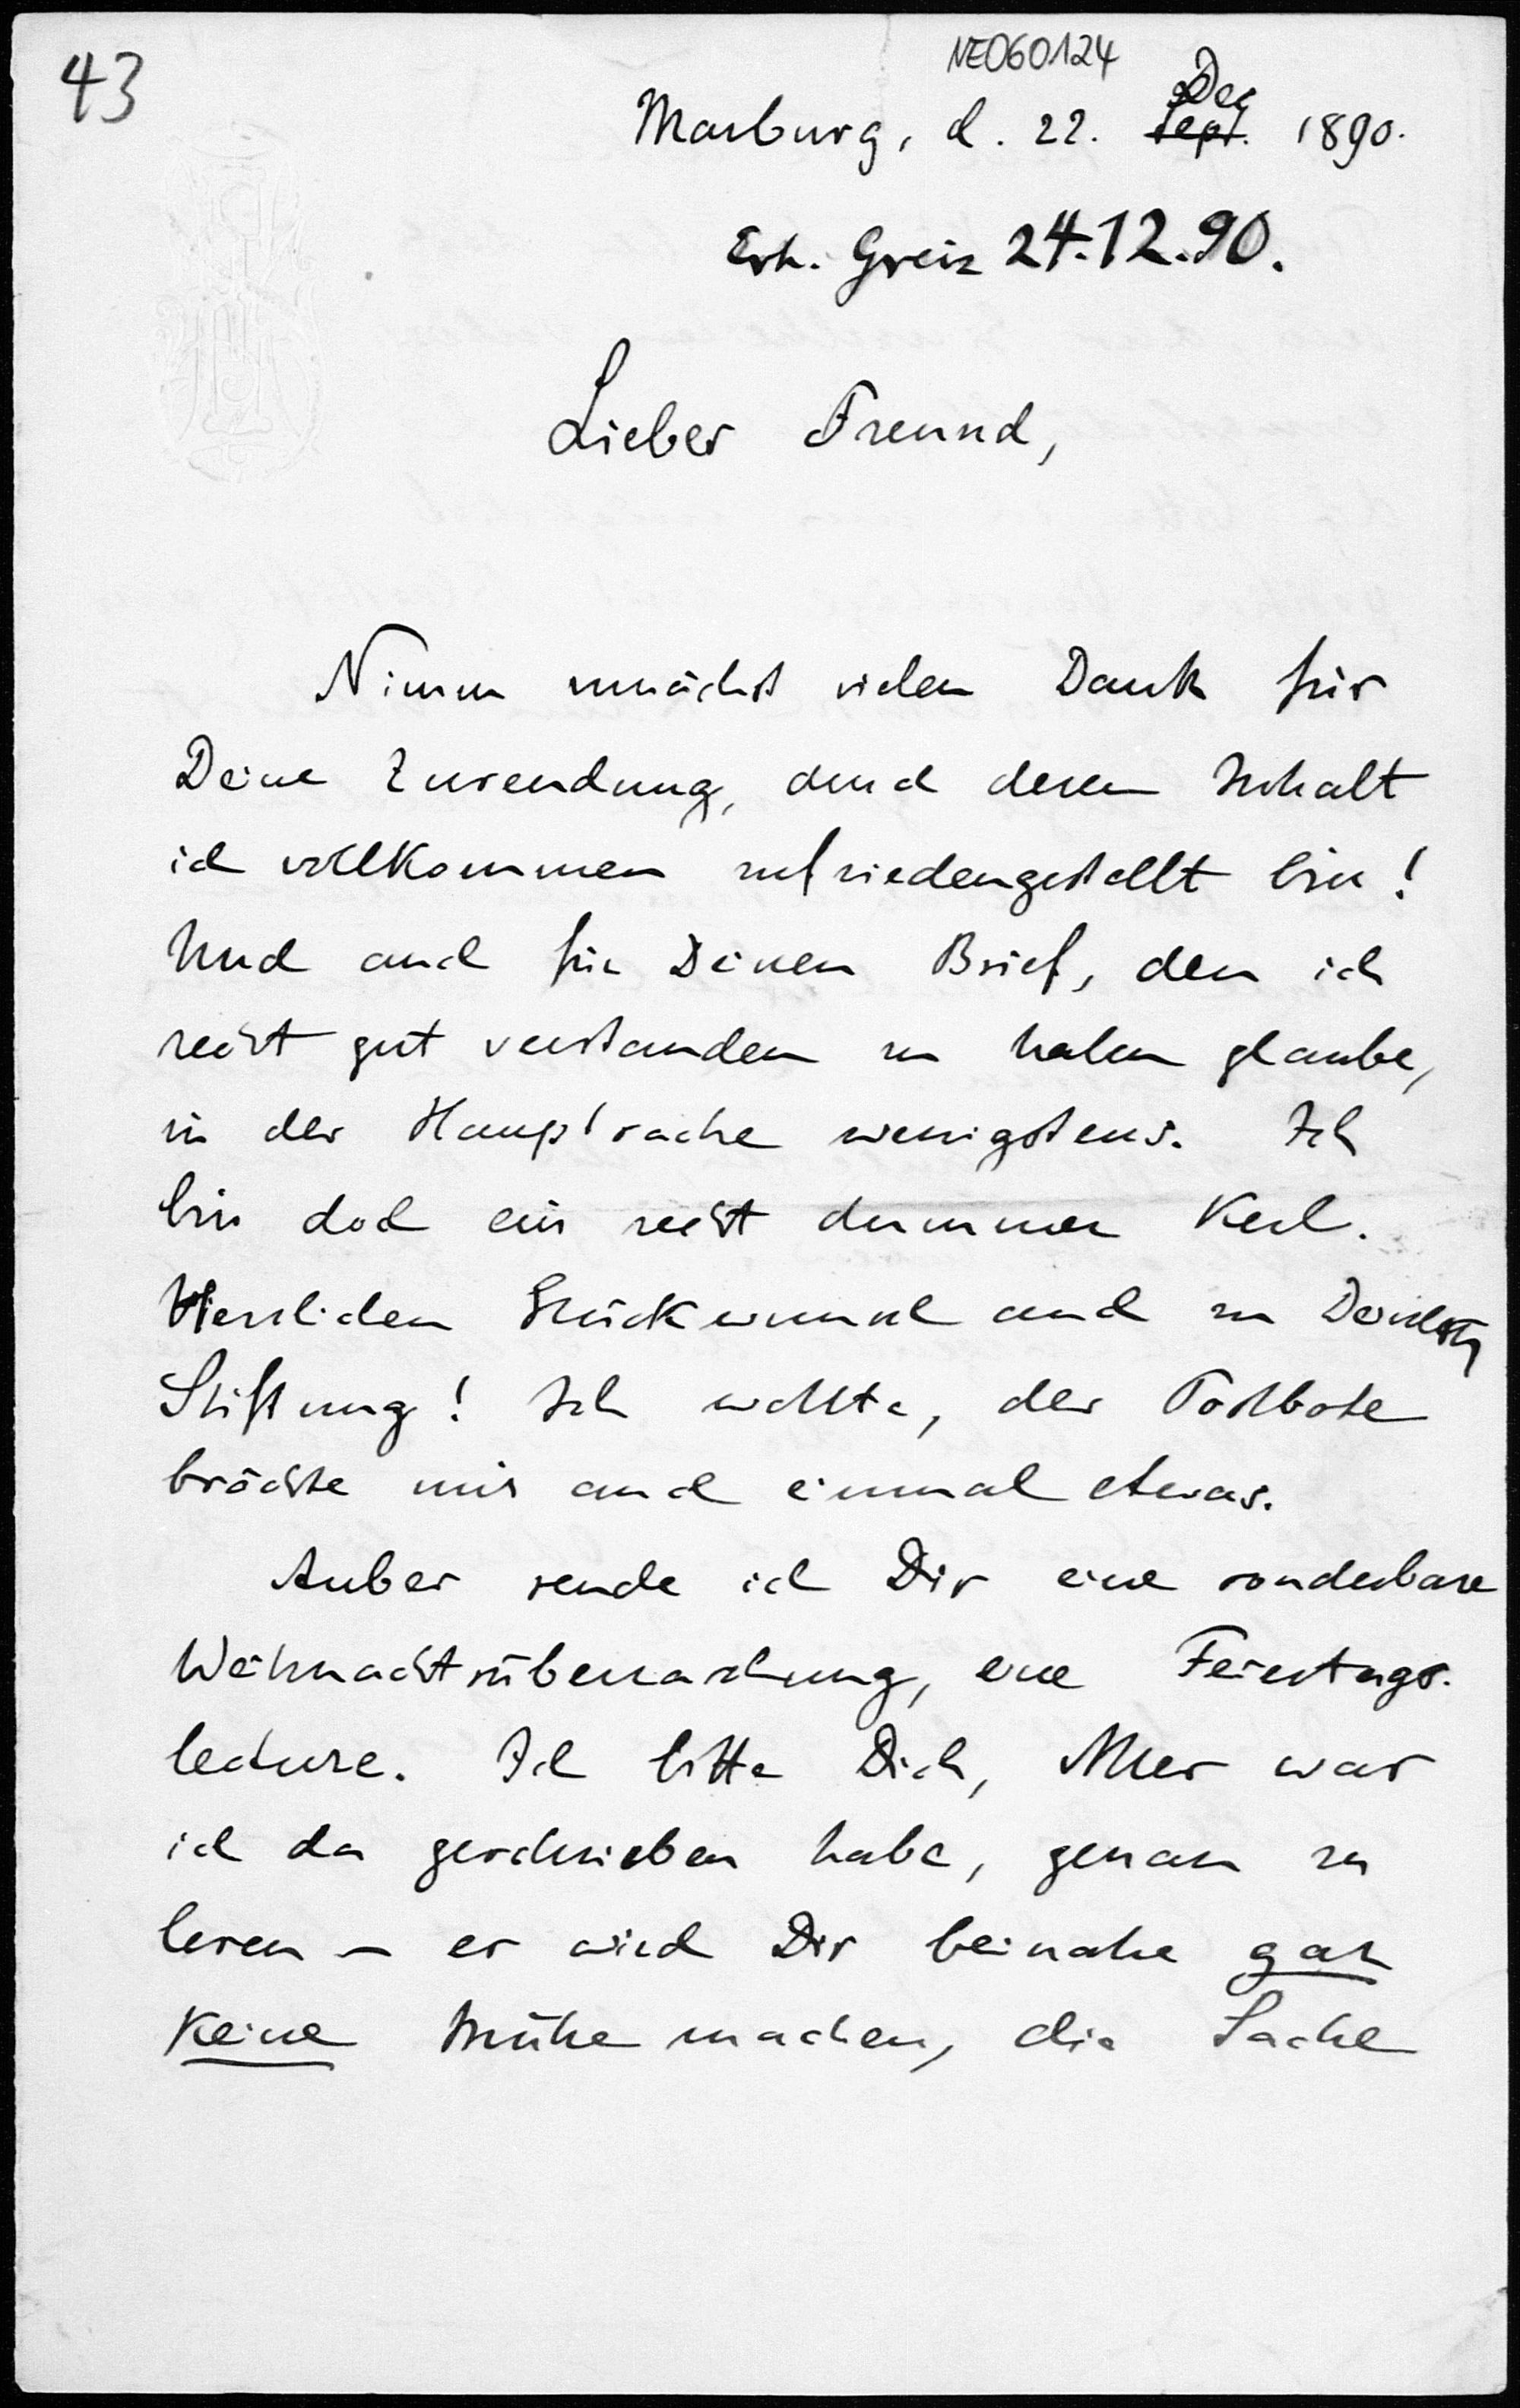 43
NE060124
Marburg, d. 22. Sept. Dec 1890.
Erh. Greiz 24.12.90.
Lieber Freund,
Nimm zunächst vielen Dank für
Deine Zusendung, durch deren Inhalt
ich vollkommen zufriedengestellt bin!
Und auch für Deinen Brief, den ich
recht gut verstanden zu haben glaube,
in der Hauptsache wenigstens. Ich
bin doch ein recht dummer Kerl.
Herzlichen Glückwunsch auch zu
Stiftung! Ich wollte, der Postbote
brächte mir auch einmal etwas.
Anber sende ich Dir eine sonderbare
Weihnachtsüberraschung, eine Feiertags-
lecture. Ich bitte Dich, Alles was
ich da geschrieben habe, genau zu
lesen – es wird Dir beinahe gar
keine Mühe machen, die Sache